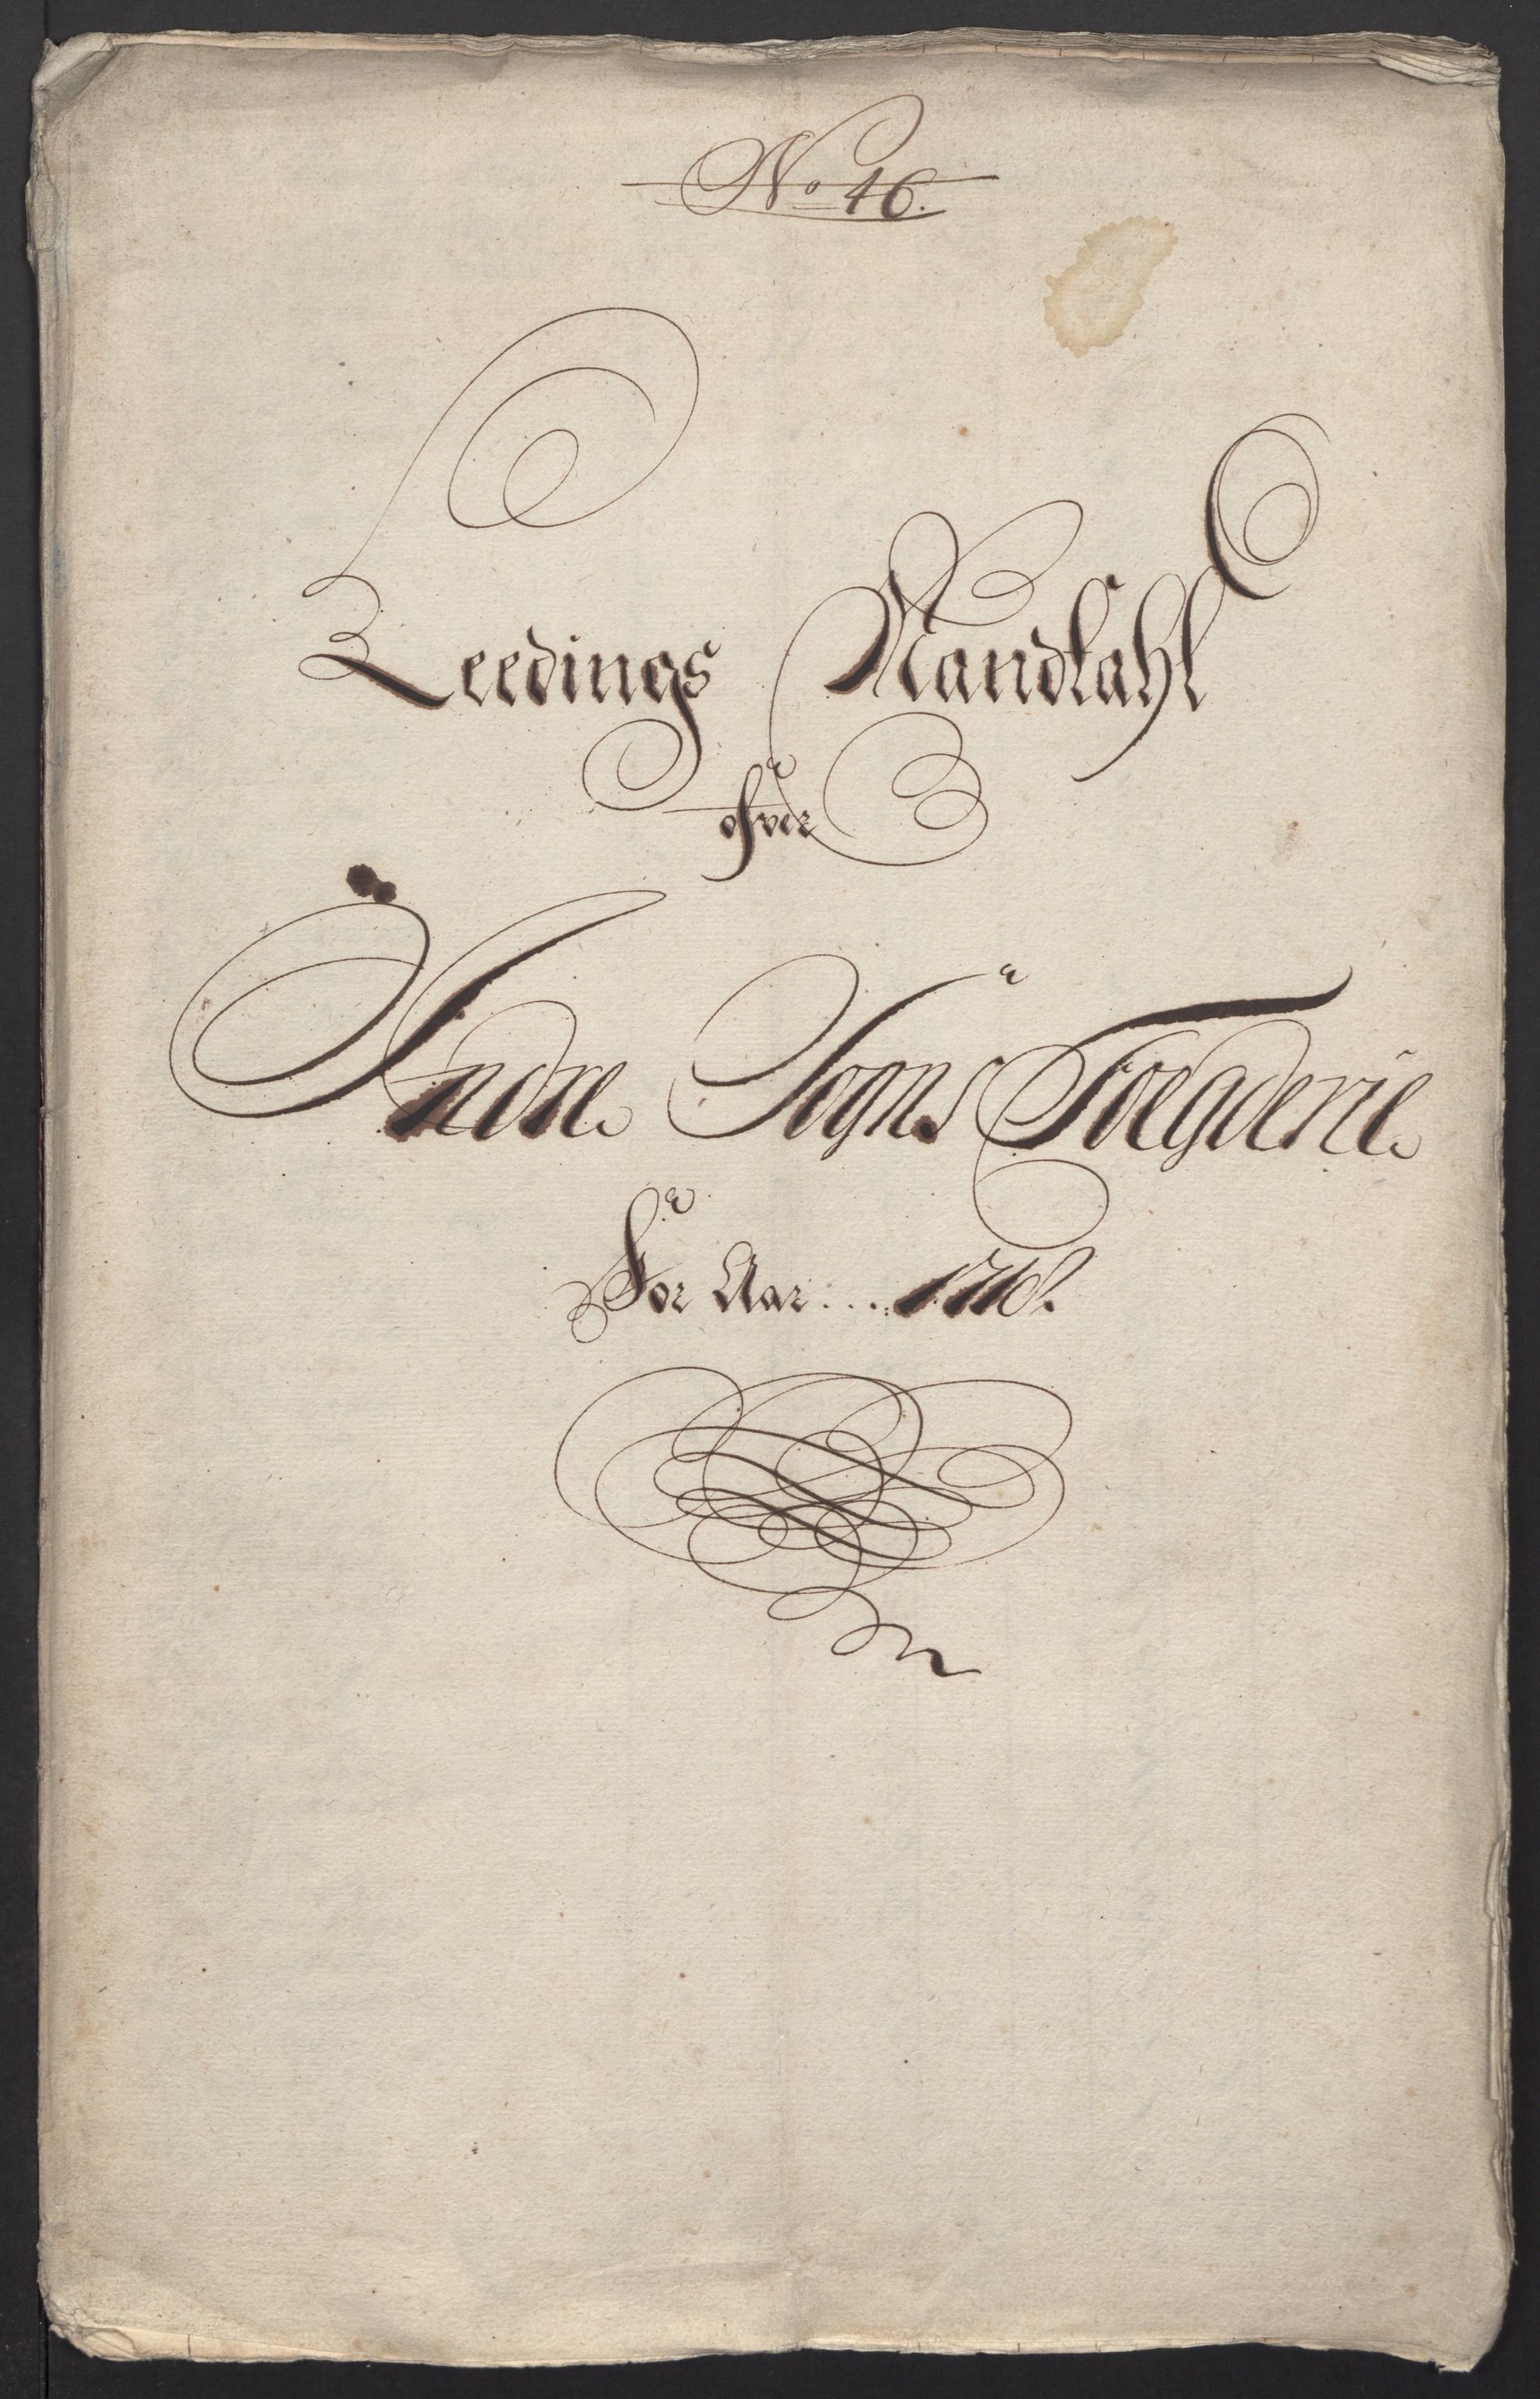 No 46.
Leedings Mandtahl
ofver
Indre Sogns Foegderie
For Aar.... 1718.